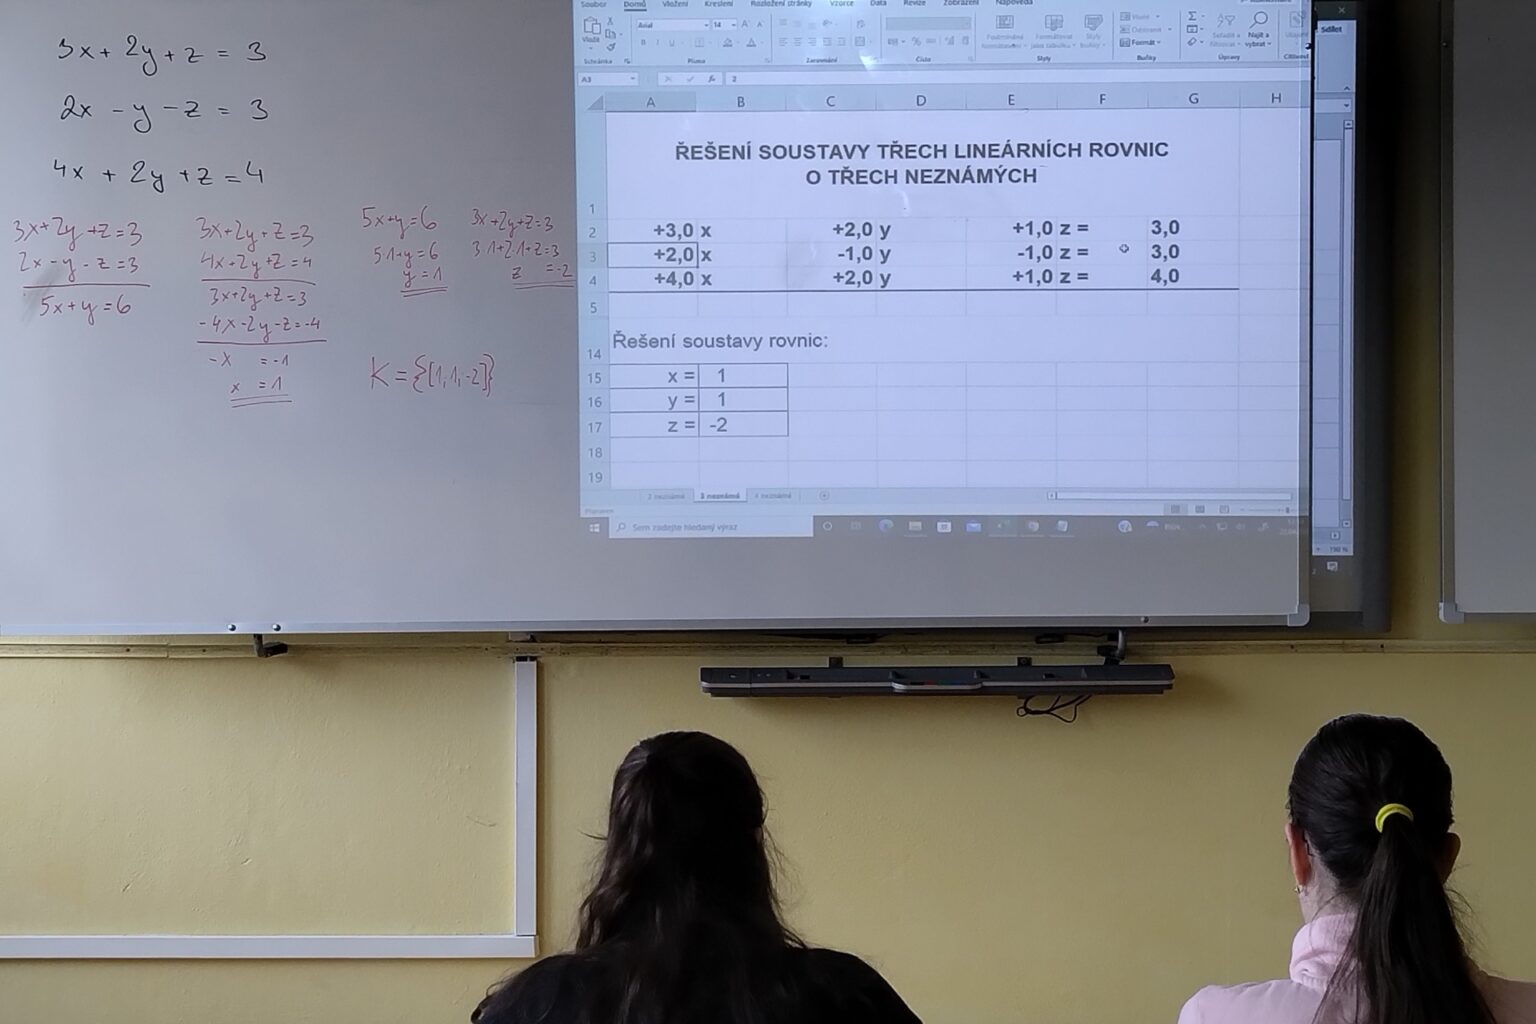 3x + 2y + z = 3
2x - y - z = 3
4x + 2y + z = 4
3x+2y+z=3
2x-y-z=3
5x+y=6
3x+2y+z=3
4x+2y+z=4
3x+2y+z=3
-4x-2y-z=-4
-x = -1
x = 1
5x+y=6
5·1+y=6
y=1
3x+2y+z=3
3·1+2·1+z=3
z =-2
K={[1,1,-2]}
Soubor Domů Vložení Kreslení Rozložení stránky Vzorce Data Revize Zobrazení Nápověda
Sdílet
Arial 14
Vložit
Schránka Písmo Zarovnání Číslo Styly Buňky Úpravy
Formát
A3 fx 2
A B C D E F G H
ŘEŠENÍ SOUSTAVY TŘECH LINEÁRNÍCH ROVNIC
O TŘECH NEZNÁMÝCH
1
2 +3,0 x +2,0 y +1,0 z = 3,0
3 +2,0 x -1,0 y -1,0 z = 3,0
4 +4,0 x +2,0 y +1,0 z = 4,0
5
14 Řešení soustavy rovnic:
15 x = 1
16 y = 1
17 z = -2
18
19
2 neznámé 3 neznámé 4 neznámé
Sem zadejte hledaný výraz